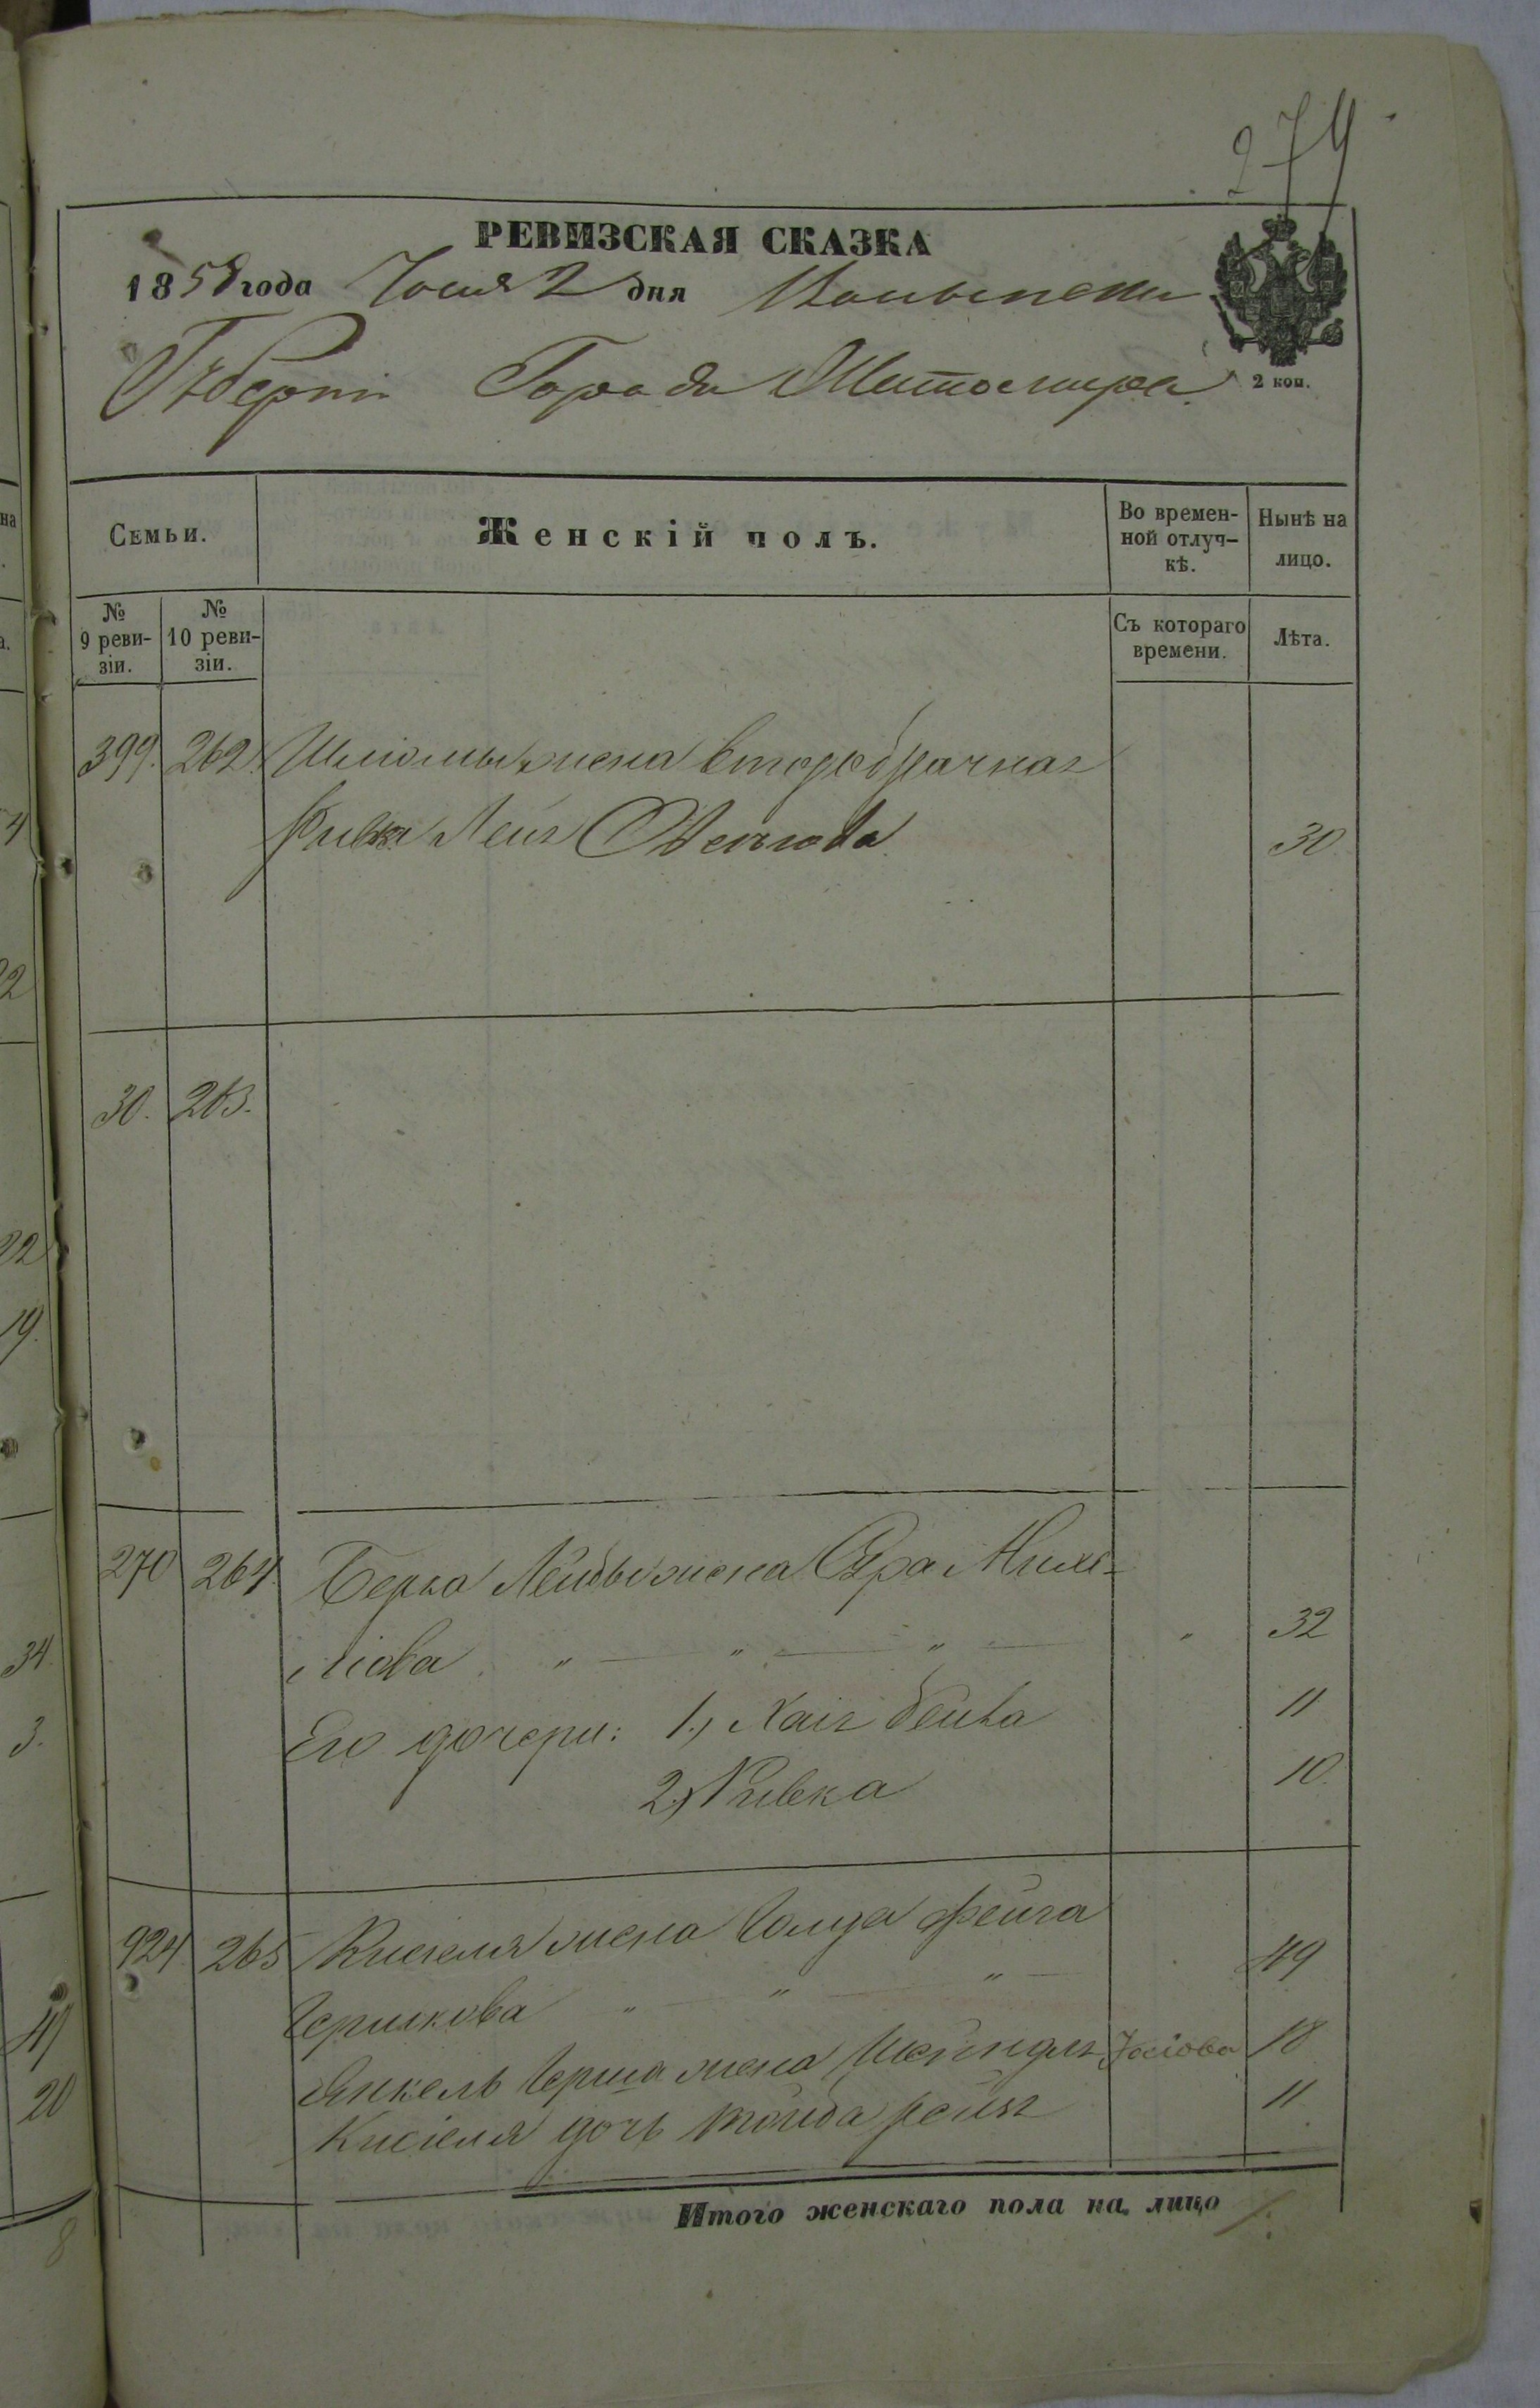 274
РЕВИЗСКАЯ СКАЗКА
1858 года Іюня 2 дня Волынской
Губерніи Города Житомира
2 коп.
Семьи.
Женскій полъ.
Во времен-
ной отлуч-
кѣ.
Нынѣ на
лицо.
№
9 реви-
зіи.
№
10 реви-
зіи.
Съ котораго
времени.
Лѣта.
399. 262. Шліомы жена второбрачная
Ривка Лея 30
30. 263.
270 264. Берка Лейбы жена Сура Михе-
ліова " " " 32
Его дочери: 1) Хая Бейла 11
2) Ривка 10.
924 265 Кисіеля жена Голда Фейга
Гершкова " " " 49
Янкель Герша жена Шейндля Іосіова 18
Кисіеля дочь Тойба Рейзя 11
Итого женскаго пола на лицо